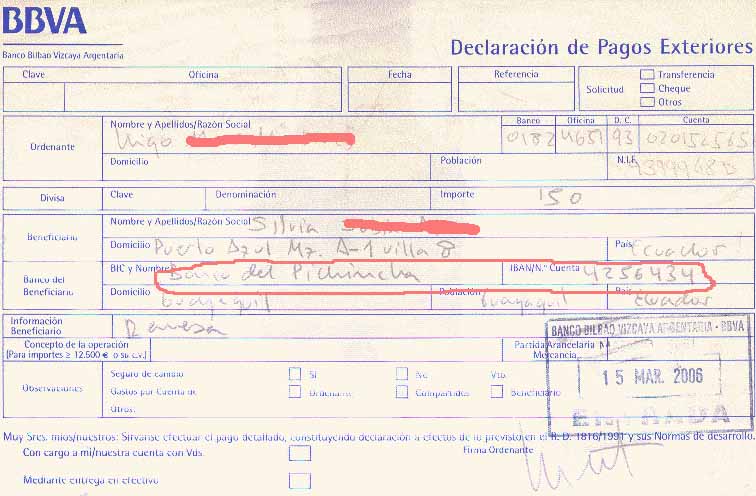 BBVA
Banco Bilbao Vizcaya Argentaria
Declaración de Pagos Exteriores
Clave Oficina Fecha Referencia
Solicitud
Transferencia
Cheque
Otros
Ordenante
Nombre y Apellidos/Razón Social
Banco Oficina D. C. Cuenta
0182 4651 93
Domicilio Población N.I.F.
Divisa Clave Denominación Importe 150
Beneficiario
Nombre y Apellidos/Razón Social Silvia
Domicilio Puerto Azul Mz. A-1 villa 8 País Ecuador
Banco del Beneficiario
BIC y Nombre Banco del Pichincha IBAN/N.º Cuenta 4256434
Domicilio Guayaquil Población Guayaquil País Ecuador
Información Beneficiario
Concepto de la operación
(Para importes ≥ 12.500 € o su c.v.)
Partida Arancelaria
Mercancía
Observaciones
Seguro de cambio Si No Vto.
Gastos por Cuenta de Ordenante Compartidos Beneficiario
Otros:
BANCO BILBAO VIZCAYA ARGENTARIA - BBVA
15 MAR. 2006
Muy Sres. míos/nuestros: Sírvanse efectuar el pago detallado, constituyendo declaración a efectos de lo previsto en el R. D. 1816/1991 y sus Normas de desarrollo.
Con cargo a mi/nuestra cuenta con Vds.
Firma Ordenante
Mediante entrega en efectivo